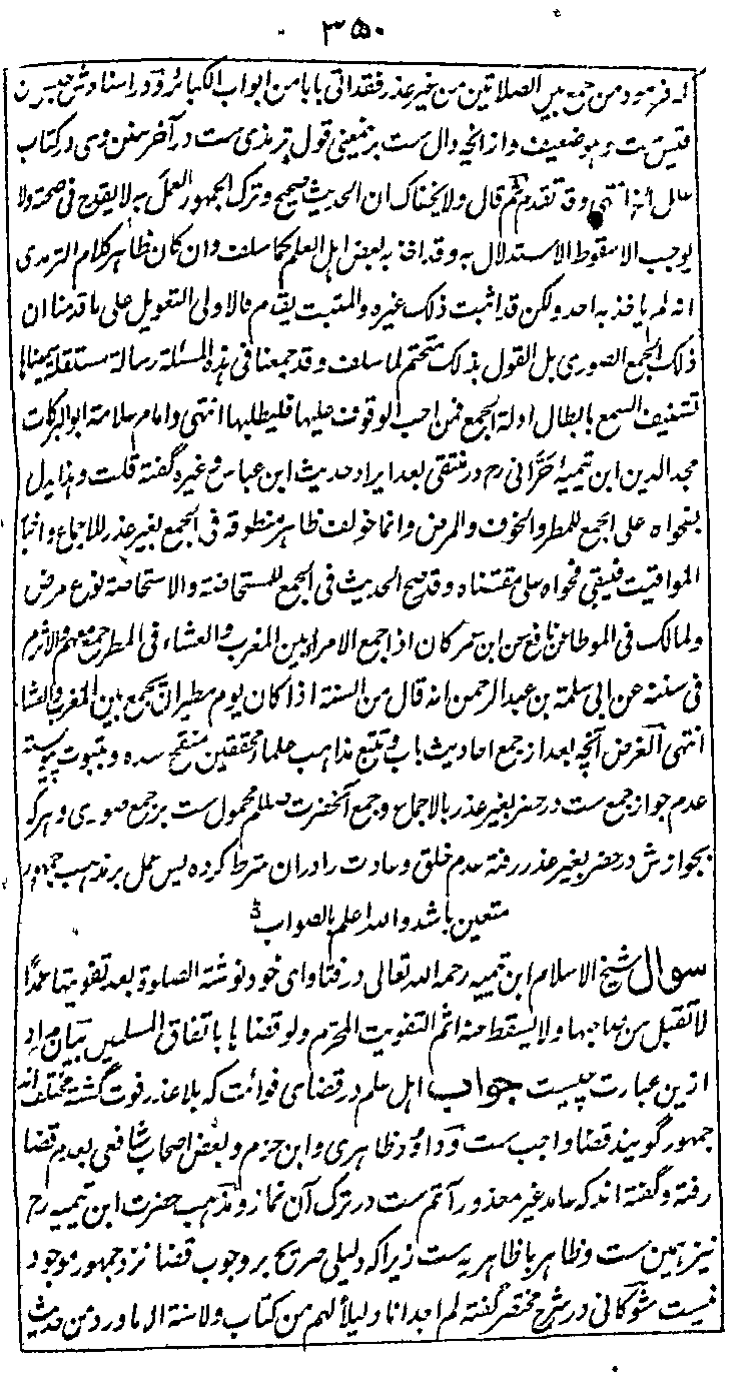 ۳۵۰
فرمود من جمع بین الصلاتین من غیر عذر فقد اتی بابا من ابواب الکبائر و در اسنادش حبیش بن
قیس ست و هو ضعیف و از انچه دال ست بر ضعف قول ترمذی ست در آخر سنن وی در کتاب
علل انتهی و قد تقدم ثم قال ولا یخفاک ان الحدیث صحیح و ترک الجمهور العمل به لا یقدح فی صحته ولا
یوجب الا سقوط الاستدلال به و قد اخذ به بعض اهل العلم کما سلف و ان کان ظاهر کلام الترمذی
انه لم یاخذ به احد ولکن قد اثبت ذلک غیره و المثبت یقدم فالاولی التعویل علی ما قدمنا ان
ذلک الجمع الصوری بل القول بذلک متحتم لما سلف و قد جمعنا فی هذه المسئلة رسالة مستقلة سمیناها
تشنیف السمع بابطال ادلة الجمع فمن احب الوقوف علیها فلیطلبها انتهی و امام علامه ابو البرکات
مجد الدین ابن تیمیه حرانی رح در منتقی بعد ایراد حدیث ابن عباس و غیره گفته قلت و هذا یدل
بفحواه علی الجمع للمطر و الخوف و المرض و انما خولف ظاهر منطوقه فی الجمع بغیر عذر للاجماع و اخبار
المواقیت فیبقی فحواه علی مقتضاه و قد صح الحدیث فی الجمع للمستحاضة و الاستحاضة نوع مرض
و لمالک فی الموطا عن نافع عن ابن عمر کان اذا جمع الامراء بین المغرب و العشاء فی المطر جمع معهم و الاثرم
فی سننه عن ابی سلمة بن عبد الرحمن انه قال من السنة اذا کان یوم مطیر ان یجمع بین المغرب و العشا
انتهی الغرض آنچه بعد از جمع احادیث باب و تتبع مذاهب علماء محققین منقح شده و بثبوت پیوسته
عدم جواز جمع ست در حضر بغیر عذر بالاجماع و جمع آنحضرت صلعم محمول ست بر جمع صوری و هر که
بجوازش در حضر بغیر عذر رفته عدم خلق و عادت را در ان شرط کرده پس عمل بر مذهب جمهور
متعین باشد والله اعلم بالصواب
سوال شیخ الاسلام ابن تیمیه رحمه الله تعالی در فتاوای خود نوشته الصلوة بعد تفویتها عمدا
لا تقبل من صاحبها ولا یسقط عنه اثم التفویت المحرم ولو قضاها باتفاق المسلمین بیان مراد
ازین عبارت چیست جواب اهل علم در قضای فوائت که بلا عذر فوت گشته مختلف اند
جمهور گویند قضا واجب ست و داود ظاهری و ابن حزم و بعض اصحاب شافعی بعدم قضا
رفته و گفته اند که عامد غیر معذور آثم ست در ترک آن نماز و مذهب حضرت ابن تیمیه رح
نیز همین ست و ظاهر با ظاهریه ست زیرا که دلیلی صریح بر وجوب قضا نزد جمهور موجود
نیست شوکانی در شرح مختصر گفته لم اجد انا دلیلا لهم من کتاب ولا سنة الا ما ورد من حدیث